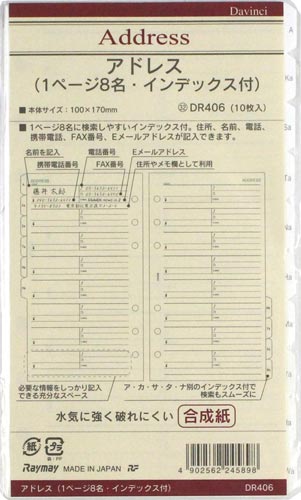 Davinci
Address
アドレス
（1ページ8名・インデックス付）
■ 本体サイズ：100×170mm
㉜ DR406（10枚入）
■ 1ページ8名に検索しやすいインデックス付。住所、名前、電話、
携帯電話、FAX番号、Eメールアドレスが記入できます。
名前を記入 電話番号 Eメールアドレス
携帯電話番号 FAX番号 住所やメモ欄として利用
藤井太郎
必要な情報をしっかり記入
できる充分なスペース
ア・カ・サ・タ・ナ別のインデックス付で
検索もスムーズに
水気に強く破れにくい 合成紙
紙 プラ
Raymay MADE IN JAPAN RF
4 902562 245898
アドレス（1ページ8名・インデックス付） DR406
A
Ka
Sa
Ta
Na
Ha